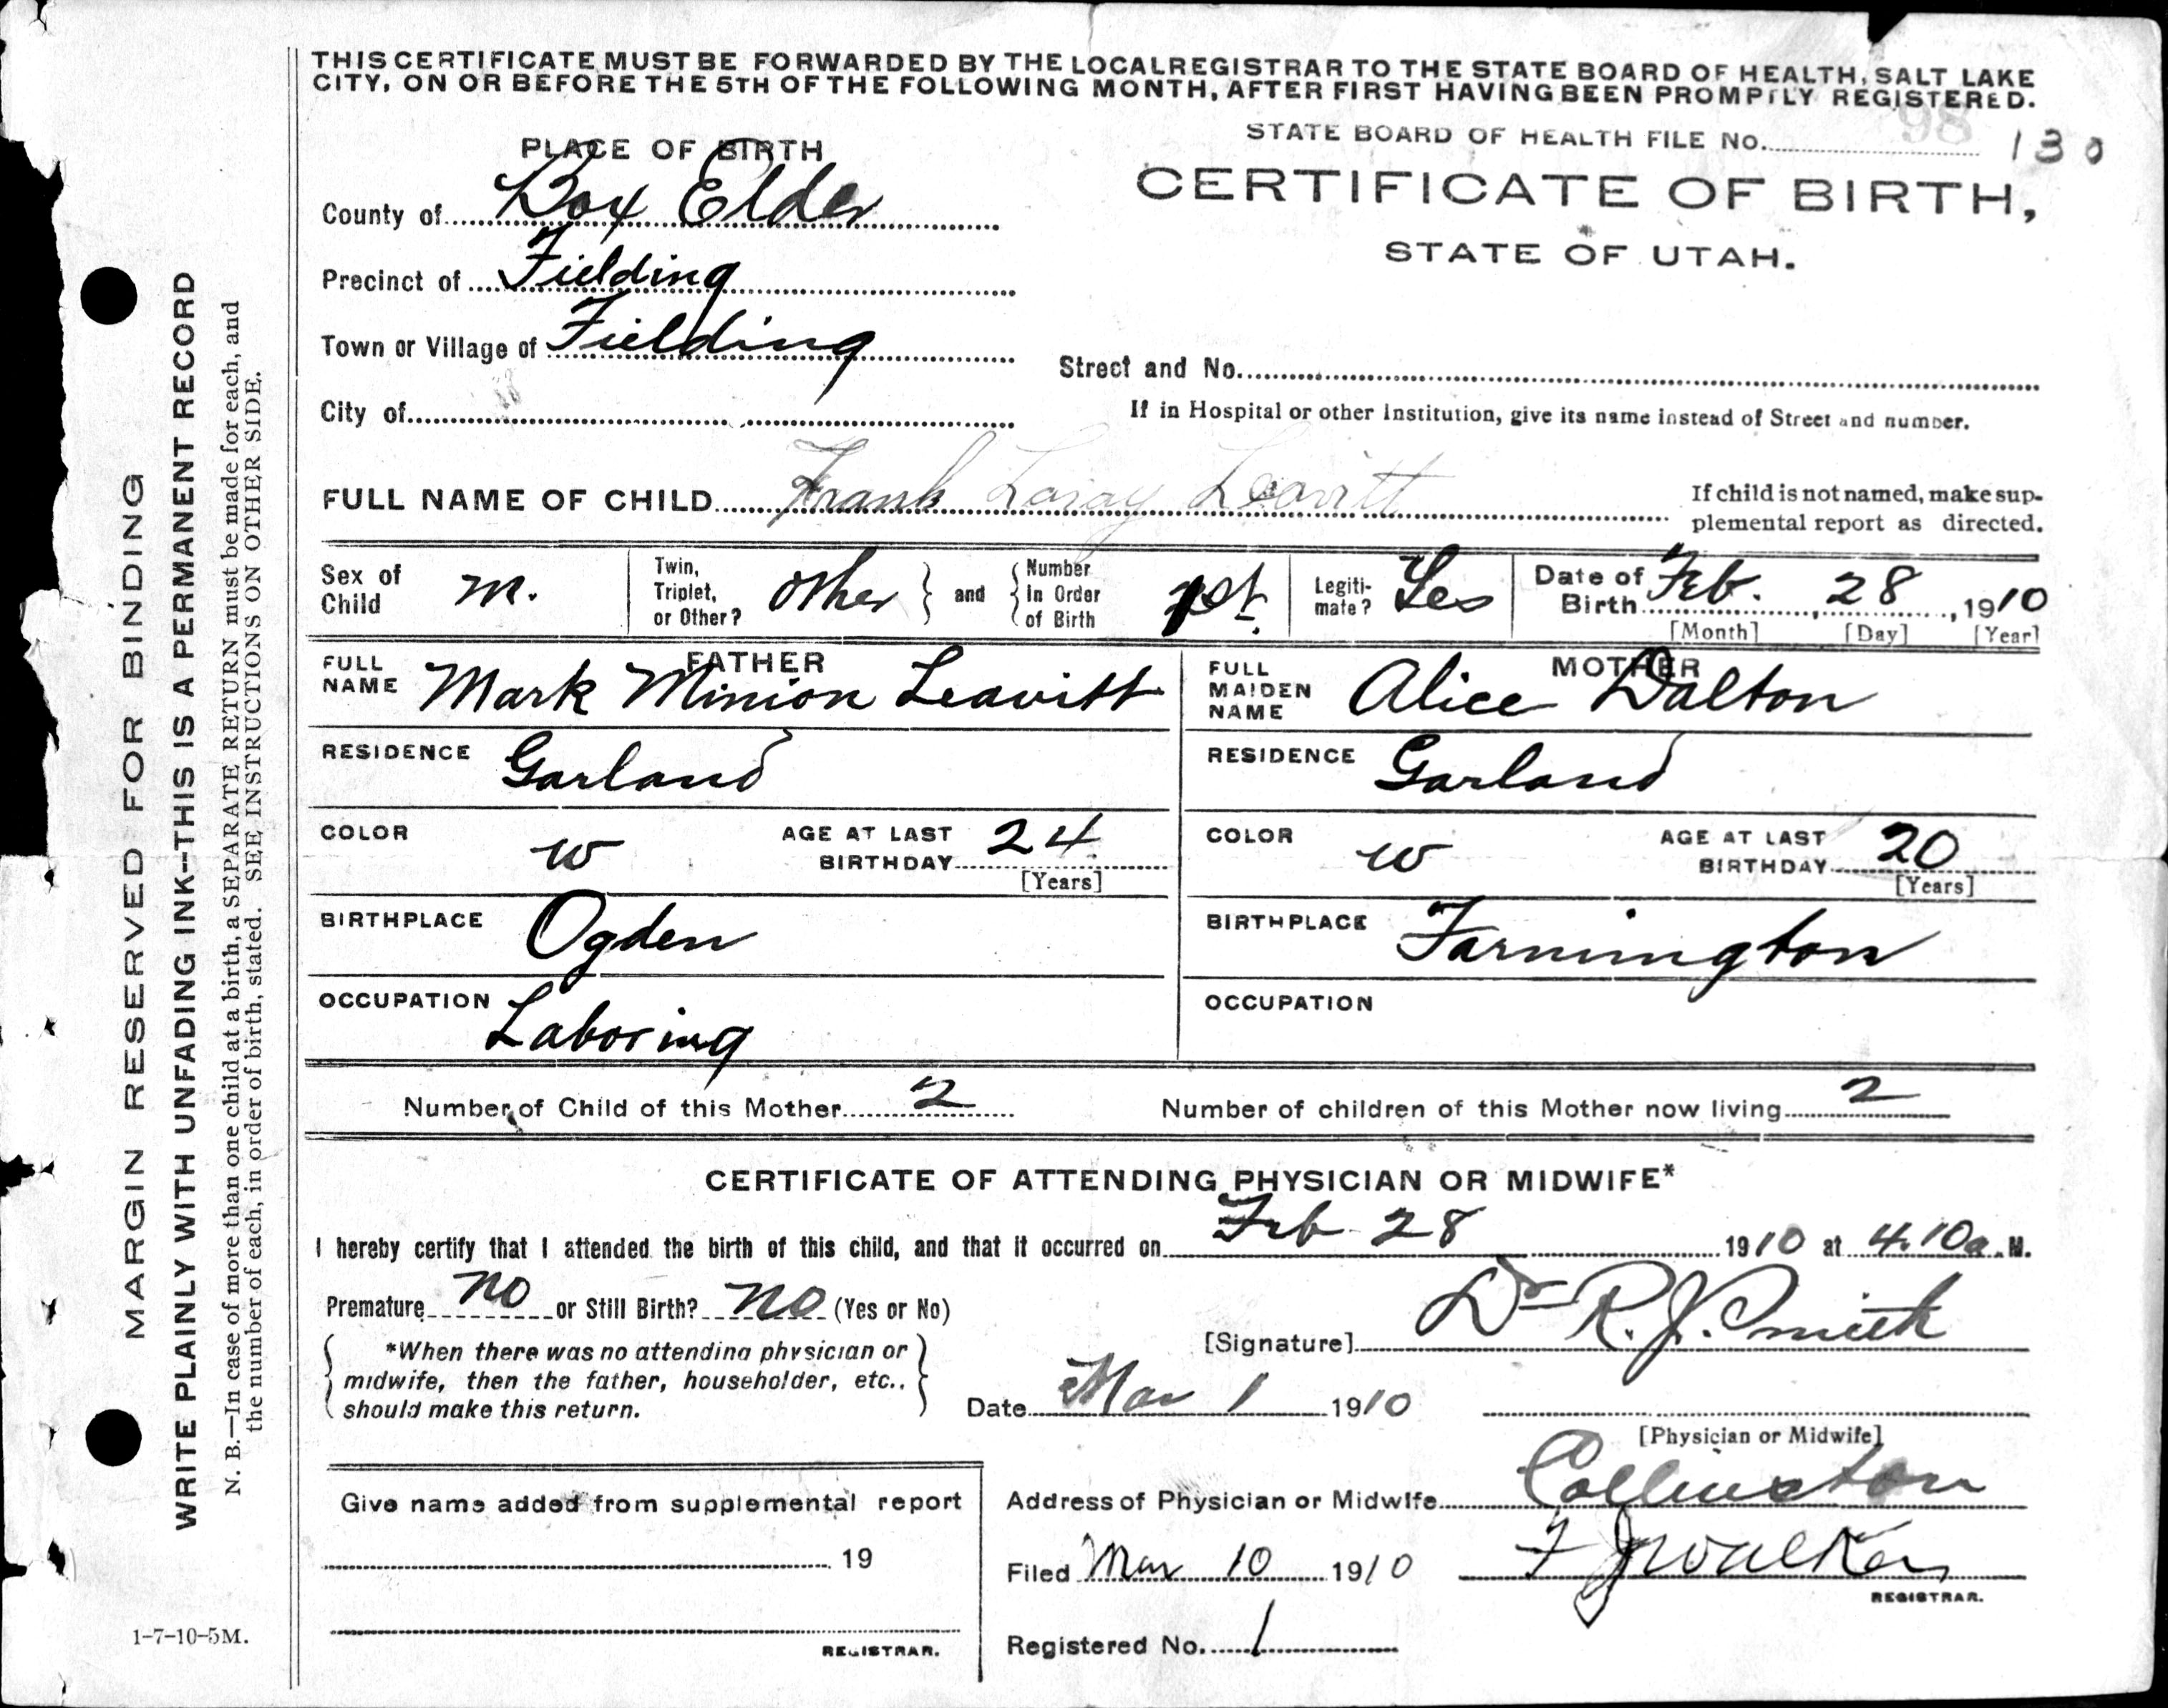 THIS CERTIFICATE MUST BE FORWARDED BY THE LOCAL REGISTRAR TO THE STATE BOARD OF HEALTH, SALT LAKE
CITY, ON OR BEFORE THE 5TH OF THE FOLLOWING MONTH, AFTER FIRST HAVING BEEN PROMPTLY REGISTERED.
STATE BOARD OF HEALTH FILE No. 98 130
PLACE OF BIRTH
CERTIFICATE OF BIRTH,
STATE OF UTAH.
County of Box Elder
Precinct of Fielding
Town or Village of Fielding
Street and No.
City of
If in Hospital or other Institution, give its name instead of Street and number.
FULL NAME OF CHILD Frank Laray Leavitt
If child is not named, make sup-
plemental report as directed.
Sex of Child m.
Twin, Triplet, or Other? other and Number In Order of Birth 1st.
Legiti-mate? Yes
Date of Birth Feb. 28, 1910
[Month] [Day] [Year]
FATHER
FULL NAME Mark Minion Leavitt
RESIDENCE Garland
COLOR w AGE AT LAST BIRTHDAY 24
[Years]
BIRTHPLACE Ogden
OCCUPATION Laboring
MOTHER
FULL MAIDEN NAME Alice Dalton
RESIDENCE Garland
COLOR w AGE AT LAST BIRTHDAY 20
[Years]
BIRTHPLACE Farmington
OCCUPATION
Number of Child of this Mother 2 Number of children of this Mother now living 2
CERTIFICATE OF ATTENDING PHYSICIAN OR MIDWIFE*
I hereby certify that I attended the birth of this child, and that it occurred on Feb 28 1910 at 4.10 a. M.
Premature no or Still Birth? no (Yes or No)
*When there was no attending physician or
midwife, then the father, householder, etc.,
should make this return.
[Signature] Dr R. J. Smith
Date Mar 1 1910
[Physician or Midwife]
Give name added from supplemental report
19
REGISTRAR.
Address of Physician or Midwife Collinston
Filed Mar 10 1910 F J Walker
REGISTRAR.
Registered No. 1
MARGIN RESERVED FOR BINDING
WRITE PLAINLY WITH UNFADING INK--THIS IS A PERMANENT RECORD
N. B.—In case of more than one child at a birth, a SEPARATE RETURN must be made for each, and
the number of each, in order of birth, stated. SEE INSTRUCTIONS ON OTHER SIDE.
1-7-10-5M.